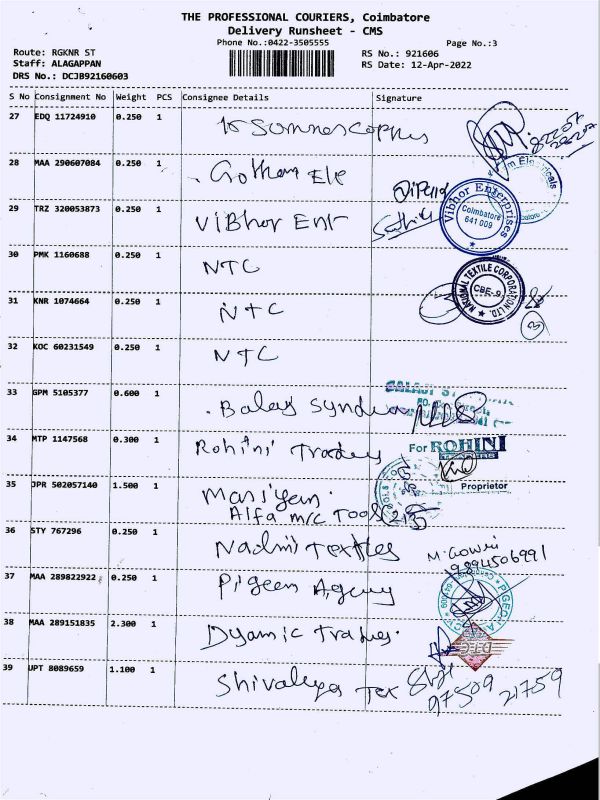 THE PROFESSIONAL COURIERS, Coimbatore
Delivery Runsheet - CMS
Phone No.:0422-3505555
Page No.:3
Route: RGKNR ST
RS No.: 921606
Staff: ALAGAPPAN
RS Date: 12-Apr-2022
DRS No.: DCJB92160603
S No Consignment No Weight PCS Consignee Details Signature
27 EDQ 11724910 0.250 1
28 MAA 290607084 0.250 1 Gotham Ele
29 TRZ 320053873 0.250 1 ViBhor Ent
Vibhor Enterprises
Coimbatore
641 009
30 PMK 1160688 0.250 1 NTC
NATIONAL TEXTILE CORPORATION LTD.
CBE-9
31 KNR 1074664 0.250 1 NTC
32 KOC 60231549 0.250 1 NTC
33 GPM 5105377 0.600 1 Balaji
34 MTP 1147568 0.300 1 Rohini Traders
For ROHINI
Proprietor
35 JPR 502057140 1.500 1
Alfa m/c Tools
36 STY 767296 0.250 1 Textiles M. Gowri
9894506991
37 MAA 289822922 0.250 1 Pigeon Agency
38 MAA 289151835 2.300 1 Dyamic Trades.
DTEC
39 UPT 8089659 1.100 1 Shivalaya Tex
97509 21759